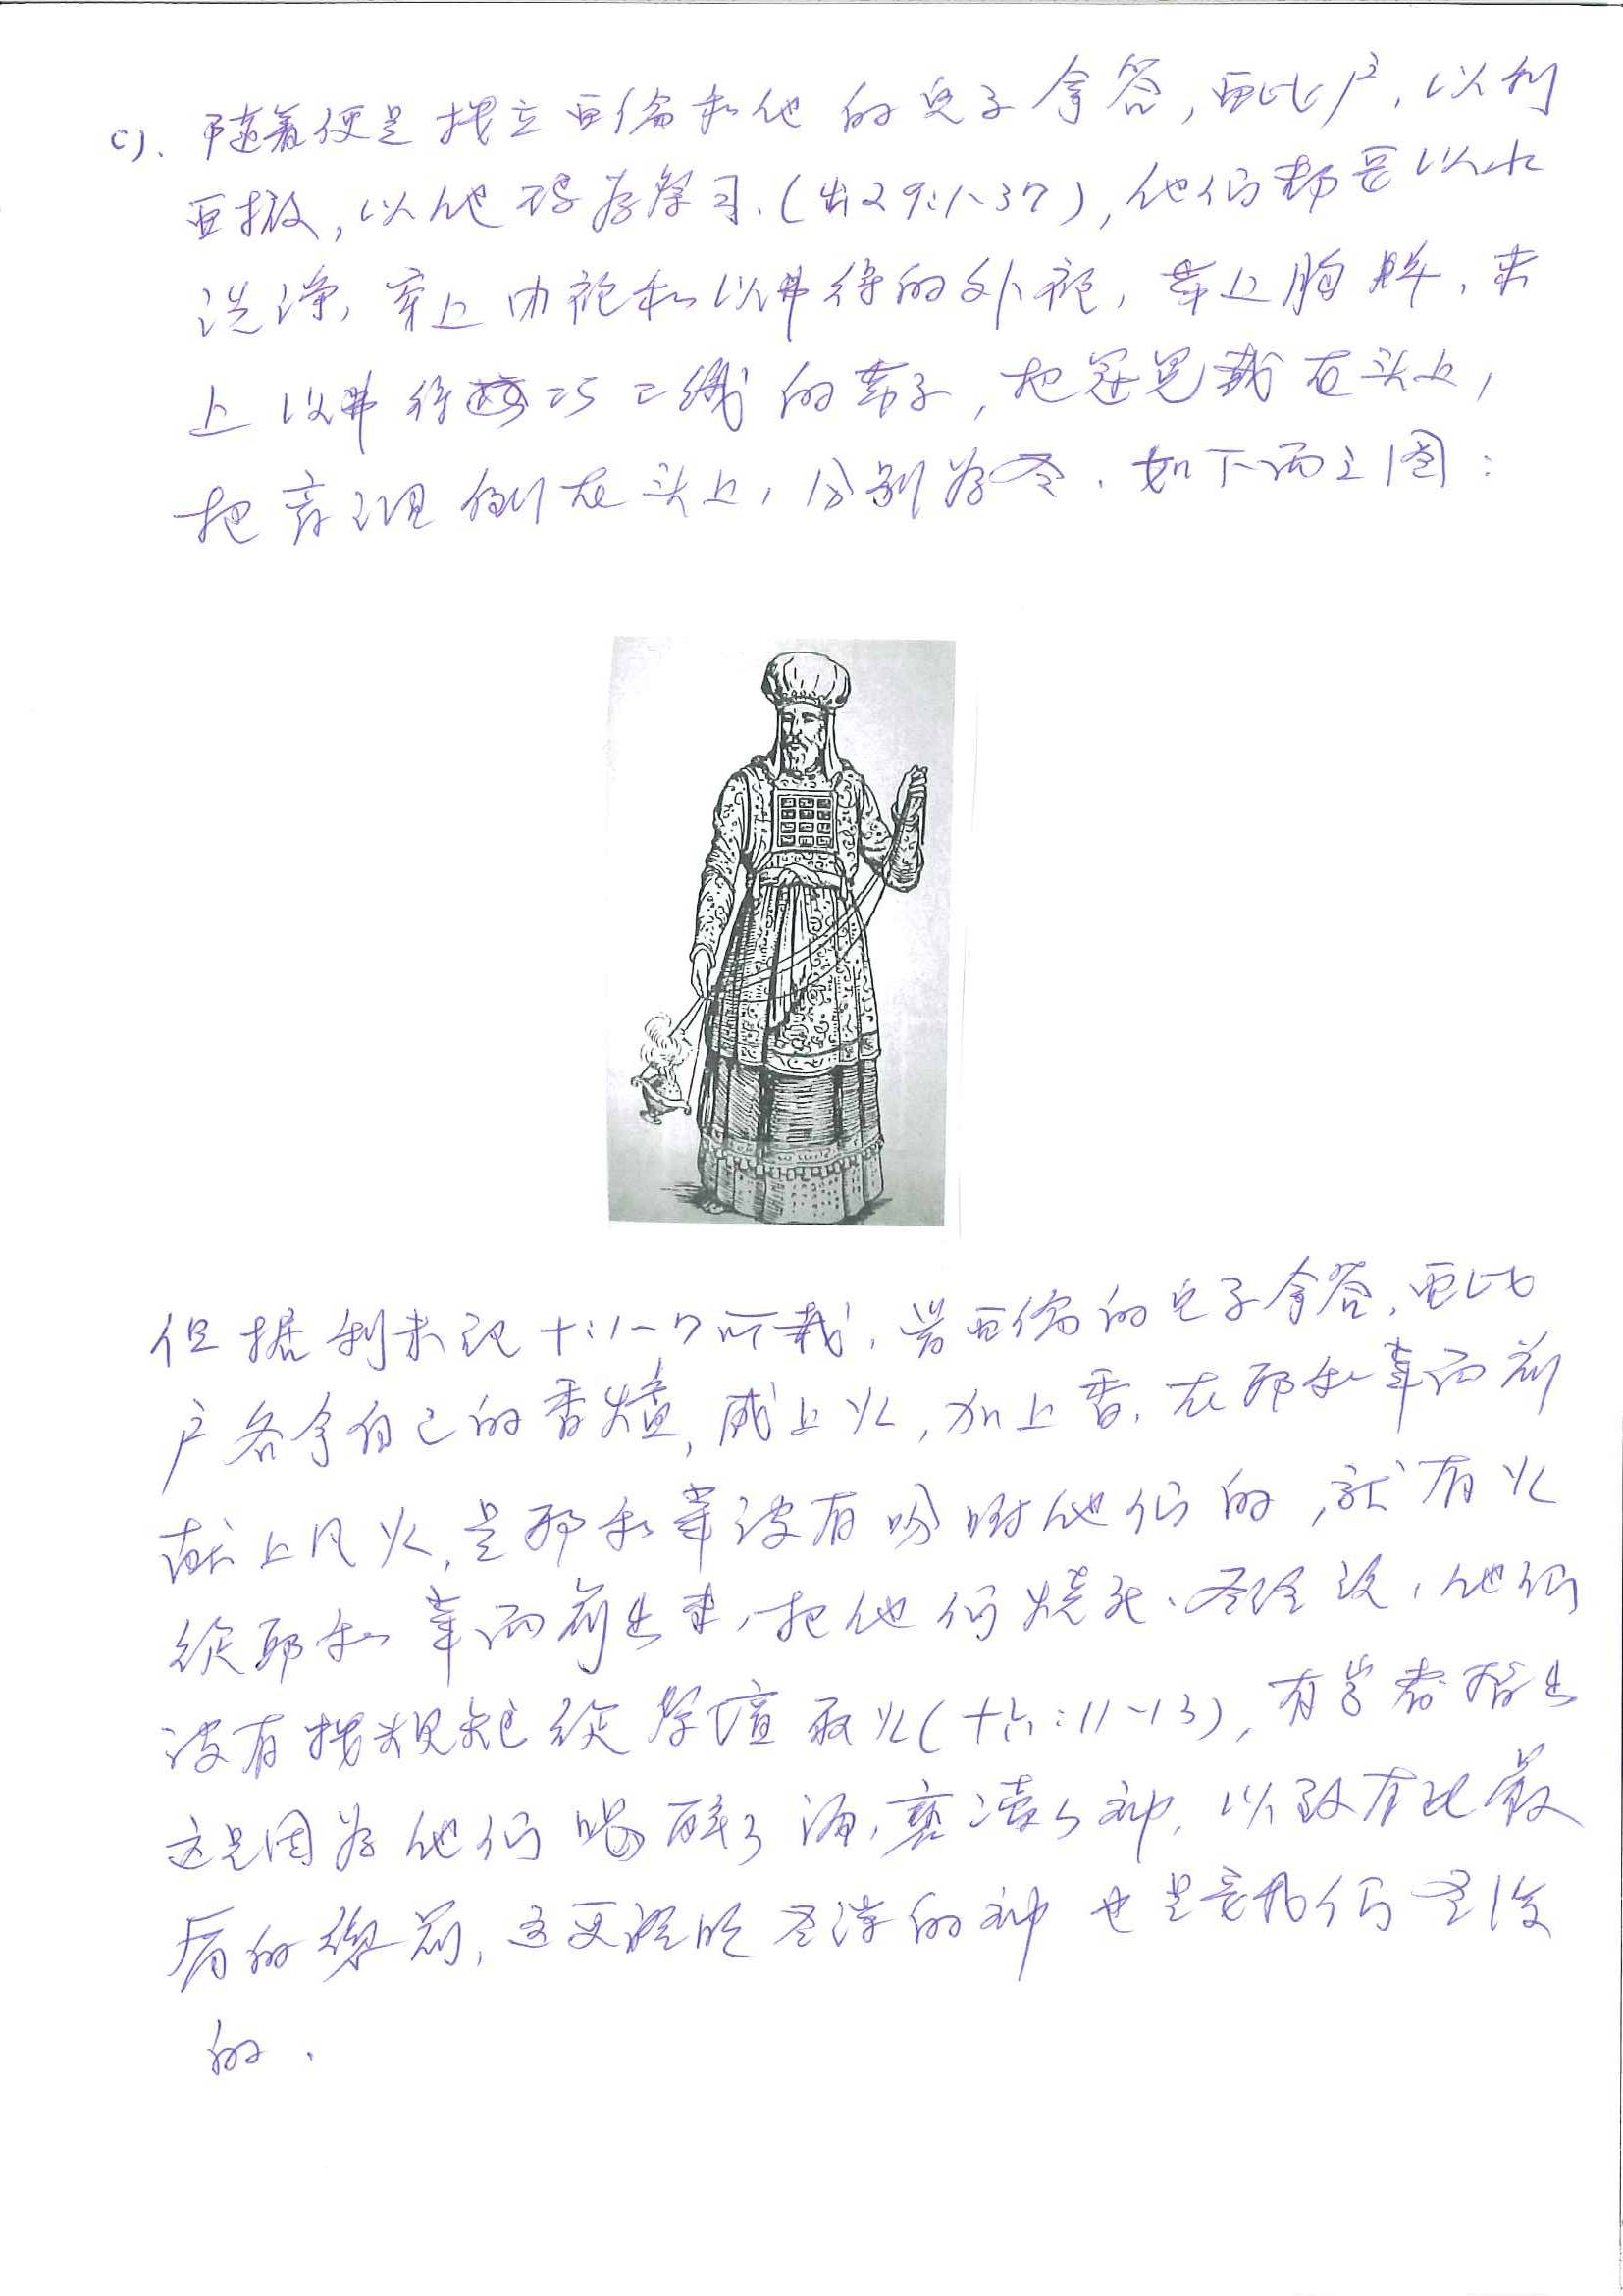 c). 随着便是拣立亚伦和他的兒子拿答,亚比户,以利
亚撒,以他玛为祭司.(出29:1-37),他们都要以水
洗净,穿上内袍和以弗得的外袍,带上胸牌,束
上以弗得巧工织的带子,把冠冕戴在头上,
把膏倒在头上,分别为圣.如下面之图:
但据利未记十:1-7所载,当亚倫的兒子拿答,亚比
户各拿自己的香爐,盛上火,加上香.在耶和華面前
献上凡火,是耶和華没有吩咐他们的,就有火
從耶和華面前出来,把他们烧死.圣经说,他们
没有按規矩從祭壇取火(十六:11-13),有学者指出
这是因为他们喝醉了酒,褻瀆了神,以致有此嚴
厉的懲罰,这更証明圣潔的神也是要我们圣潔
的.